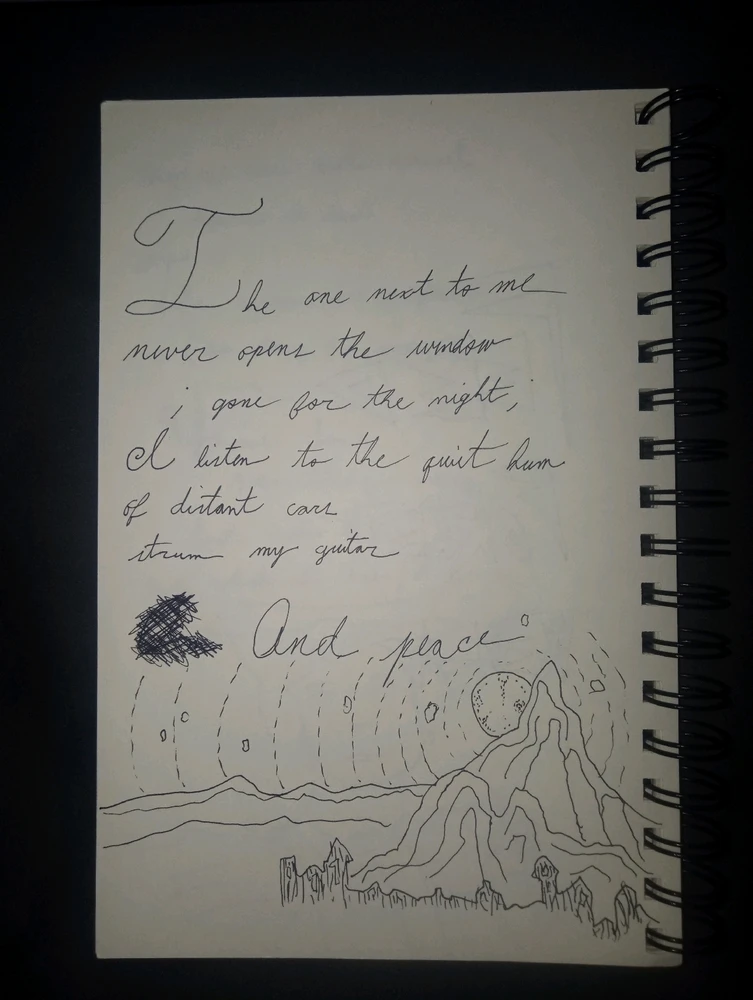 The one next to me
never opens the window
; gone for the night,;
I listen to the quiet hum
of distant cars
strum my guitar
And peace